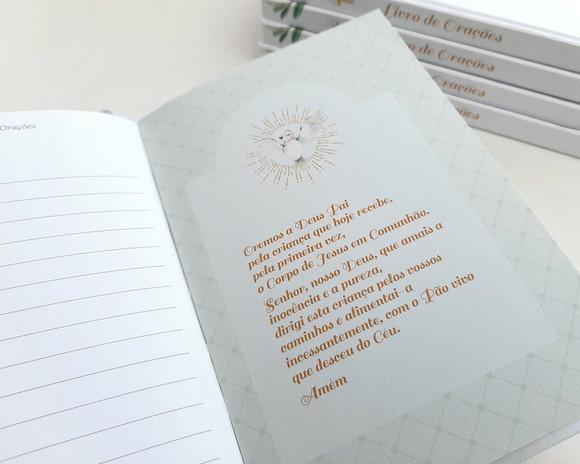 Livro de Orações
Livro de Orações
Livro de Orações
Livro de Orações
Orações
Oremos a Deus Pai
pela criança que hoje recebe,
pela primeira vez,
o Corpo de Jesus em Comunhão.
Senhor, nosso Deus, que amais a
inocência e a pureza,
dirigi esta criança pelos vossos
caminhos e alimentai-a
incessantemente, com o Pão vivo
que desceu do Céu.
Amém